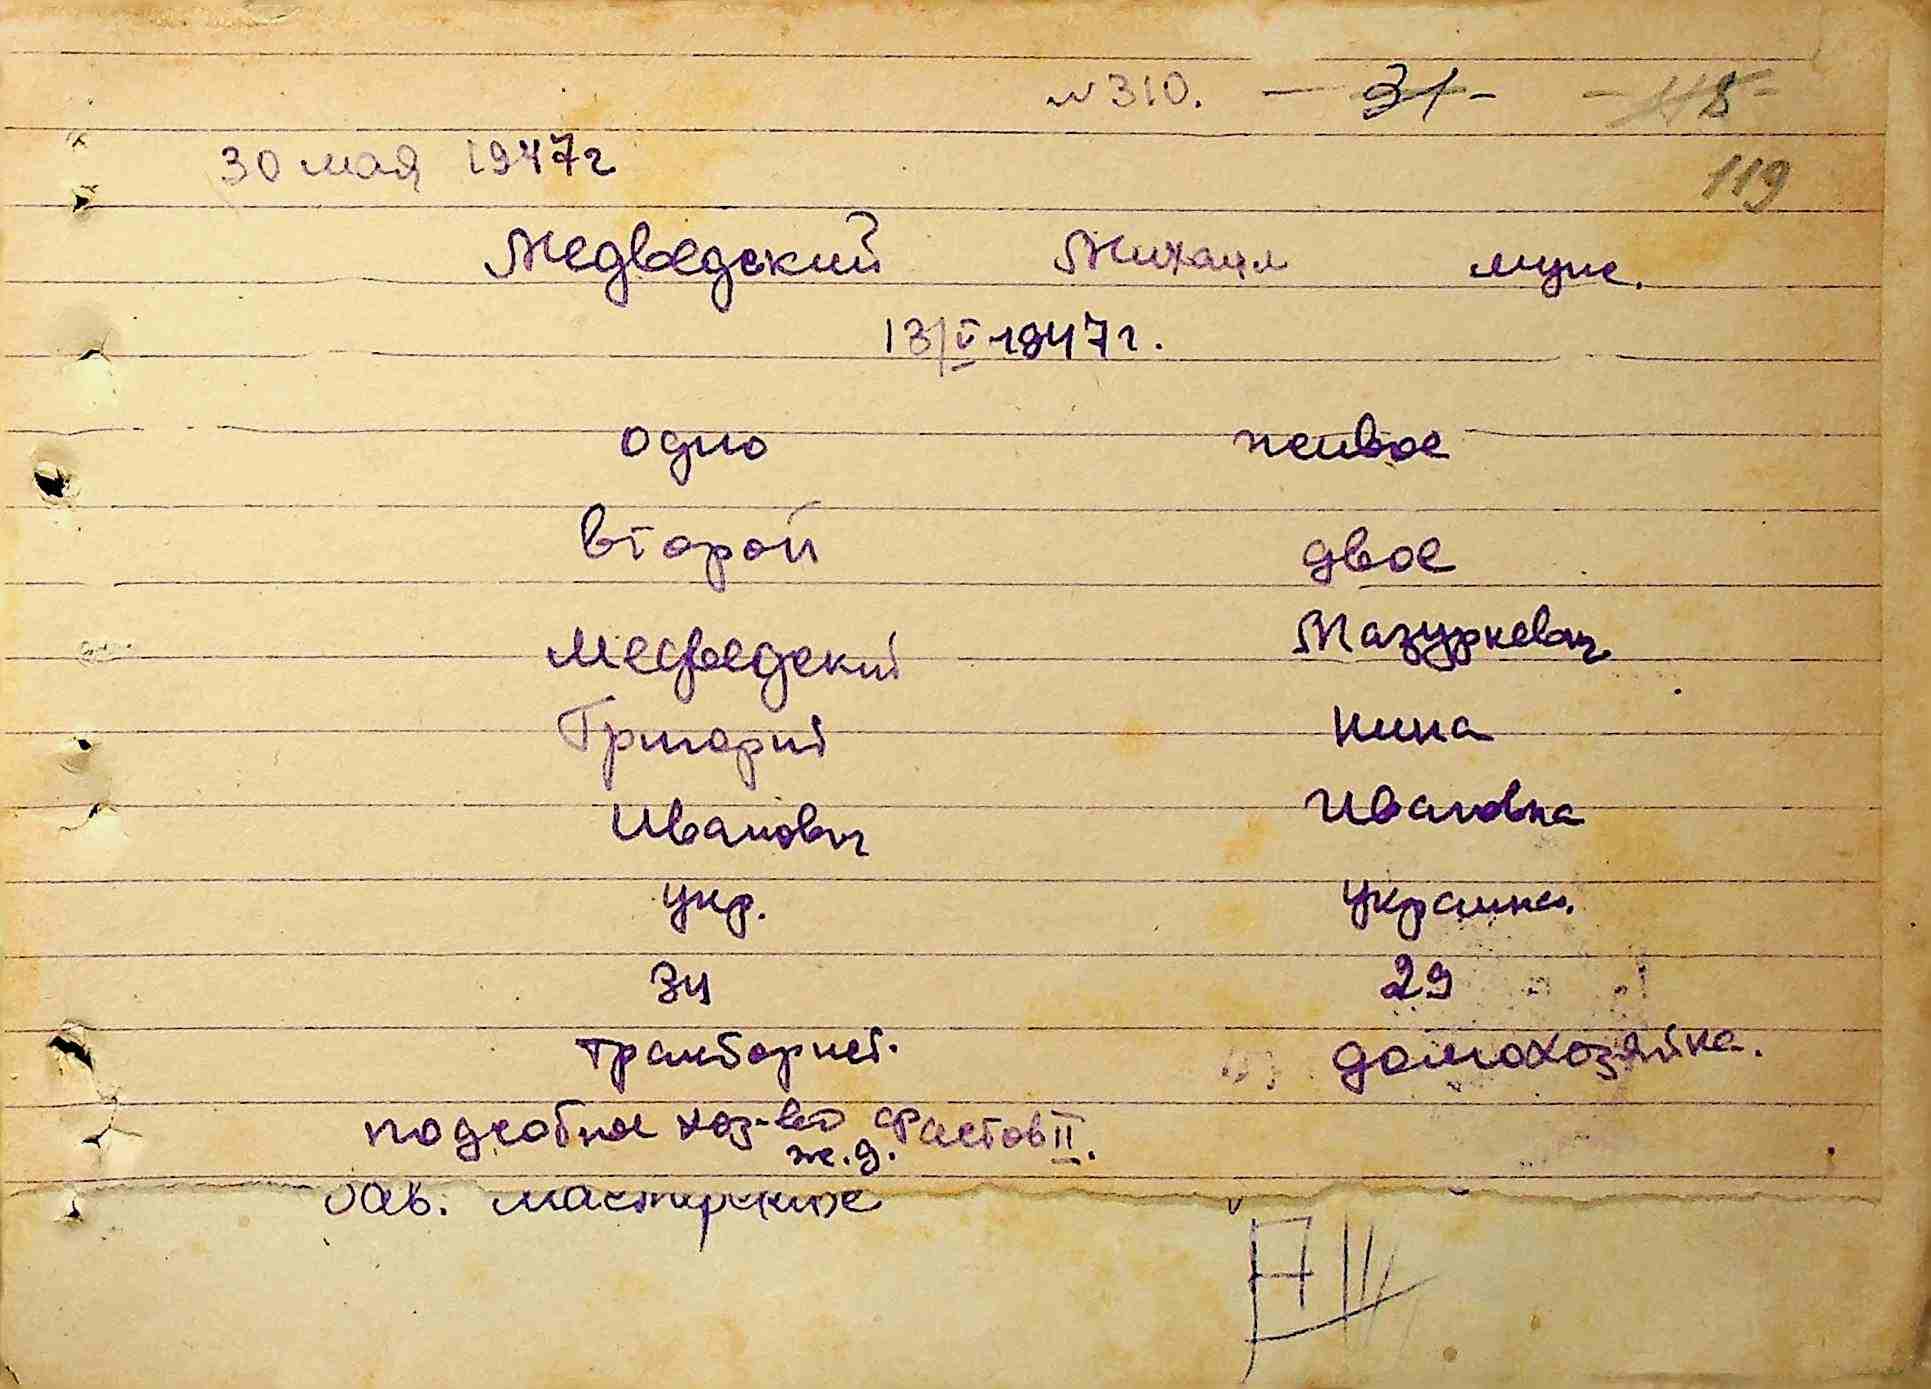 №310. — 31 – – 118 –
30 мая 1947г 119
Медведский Михаил муж.
13/V 1947г.
одно живое
второй двое
Медведский Мазуркевич
Григорий Нина
Иванович Ивановна
укр. украинка.
34 29
тракторист. домохозяйка.
подсобное хоз-во Фастов II.
ж.д.
Зав. мастерские